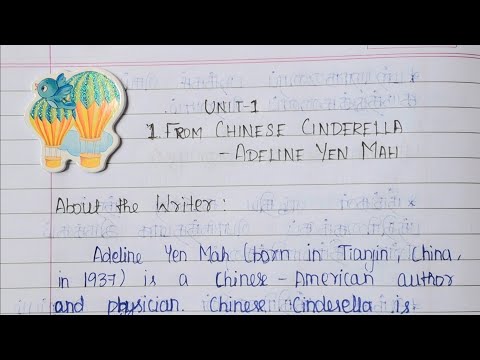 UNIT-1
1. FROM CHINESE CINDERELLA
- ADELINE YEN MAH
About the Writer:
Adeline Yen Mah (born in Tianjin, China,
in 1937) is a Chinese - American author
and physician. Chinese Cinderella is